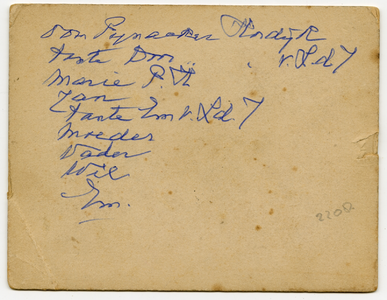 oom Pynacker Hordyk
tante Em v.Ld.T
Marie P.H
Jan
tante Em v.Ld.T
Moeder
Vader
Wil
Em.
220Q